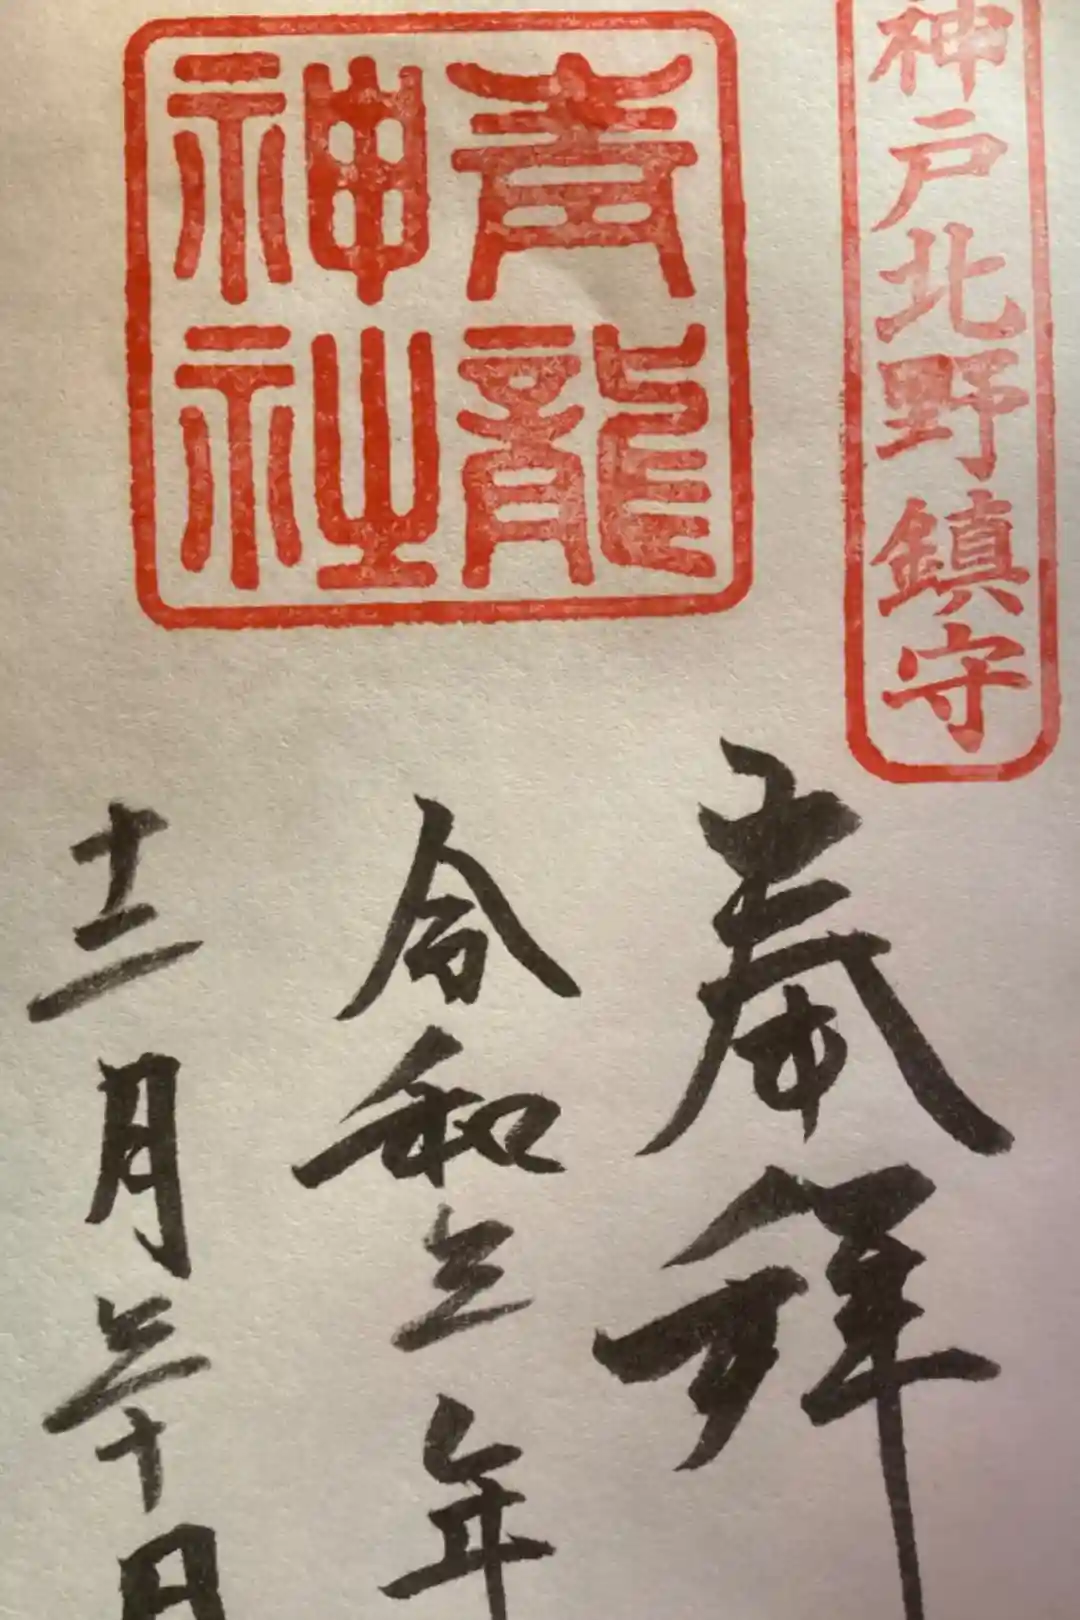 神戸北野鎮守
青龍
神社
奉拝
令和三年
十二月三十日